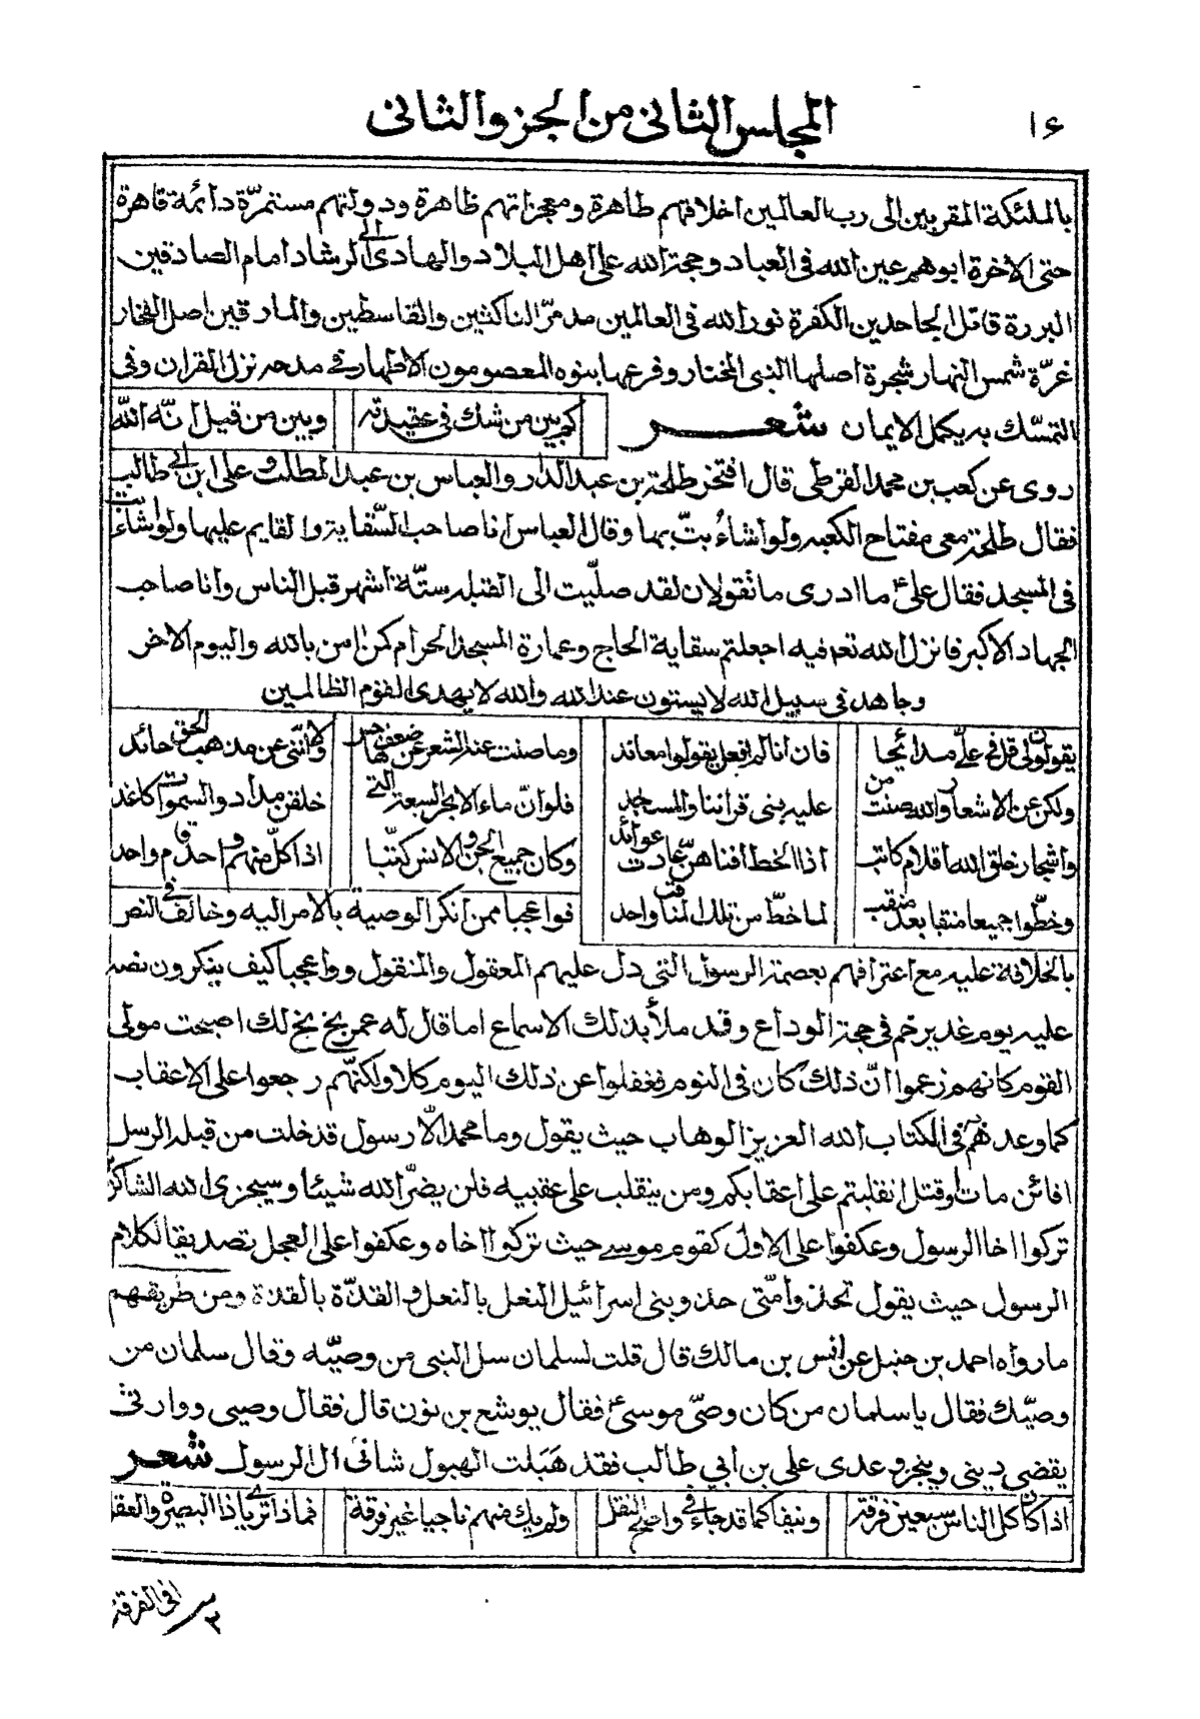 ١۶ المجلس الثانی من الجزو الثانی
بالملئکة المقربین الی رب العالمین اخلاقهم طاهرة ومعجزاتهم ظاهرة ودولتهم مستمرّة دائمة قاهرة
حتی الاخرة ابوهم عین الله فی العباد وحجة الله علی اهل البلاد والهادی الی الرشاد امام الصادقین
البررة قاتل الجاحدین الکفرة نور الله فی العالمین مدمّر الناکثین والقاسطین والمارقین اصل الفخار
غرّة شمس النهار شجرة اصلها النبی المختار وفرعها بنوه المعصومون الاطهار فی مدحه نزل القران وفی
التمسّك به یکمل الایمان شعر کم بین من شك فی عقیدته وبین من قیل انّه الله
روی عن کعب بن محمد القرطی قال افتخر طلحة بن عبد الدار والعباس بن عبد المطلب وعلی ابن ابی طالب
فقال طلحة معی مفتاح الکعبه ولو اشاءُ بتّ بها وقال العباس انا صاحب السّقایة والقایم علیها ولو اشاء بت
فی المسجد فقال علیؑ ما ادری ما تقولان لقد صلّیت الی القبله ستّة اشهر قبل الناس وانا صاحب
الجهاد الاکبر فانزل الله تعه فیه اجعلتم سقایة الحاج وعمارة المسجد الحرام کمن امن بالله والیوم الاخر
وجاهد فی سبیل الله لا یستون عند الله والله لا یهدی القوم الظالمین
یقولون لی قل فی علیّ مدائحا فان انا لم افعل یقولوا معاند وما صنت عند الشعر عن ضعف ولا انّنی عن مذهب الحق حائد
ولکن عن الاشعار والله صنت من علیه بنی قراننا والمساجد فلو انّ ماء الابحر السبعة التی خلقن مداد والسموات کاغد
واشجار خلق الله اقلام کاتب اذا الخط افناهنّ عادت عوائد وکان جمیع الجن والانس کتّبا اذا کلّ منهم واحد قام واحد
وخطّوا جمیعا منقبا بعد منقب لما خطّ من تلك المناقب واحد فواعجبا ممن انکر الوصیة بالامر الیه وخالف فی النص
بالخلافة علیه مع اعترافهم بعصمة الرسول التی دل علیهم المعقول والمنقول وواعجبا کیف ینکرون نصه
علیه یوم غدیر خم فی حجة الوداع وقد ملأ بذلك الاسماع اما قال له عمر بخ بخ لك اصبحت مولی
القوم کانهم زعموا انّ ذلك کان فی النوم فغفلوا عن ذلك الیوم کلا ولکنّهم رجعوا علی الاعقاب
کما وعدهم فی الکتاب الله العزیز الوهاب حیث یقول وما محمد الّا رسول قد خلت من قبله الرسل
افائن مات او قتل انقلبتم علی اعقابکم ومن ینقلب علی عقبیه فلن یضرّ الله شیئا وسیجزی الله الشاکرین
ترکوا اخا الرسول وعکفوا علی الاول کقوم موسی حیث ترکوا اخاه وعکفوا علی العجل تصدیقا لکلام
الرسول حیث یقول تحذوا امّتی حذو بنی اسرائیل النعل بالنعل والقذّة بالقذة ومن طریقهم
ما رواه احمد بن حنبل عن انس بن مالك قال قلت لسلمان سل النبی من وصیّه وقال سلمان من
وصیّك فقال یا سلمان من کان وصیّ موسیؑ فقال یوشع بن نون قال فقال وصیی ووارثی
یقضی دینی وینجز وعدی علی بن ابی طالب فقد هَبَلت الهبول شانئ ال الرسول شعر
اذا کان کل الناس سبعین فرقة ونیفا کما قد جاء فی واضح النقل ولم یك منهم ناجیا غیر فرقة فماذا تری یا ذا البصیرة والعقل
افی الفرقة